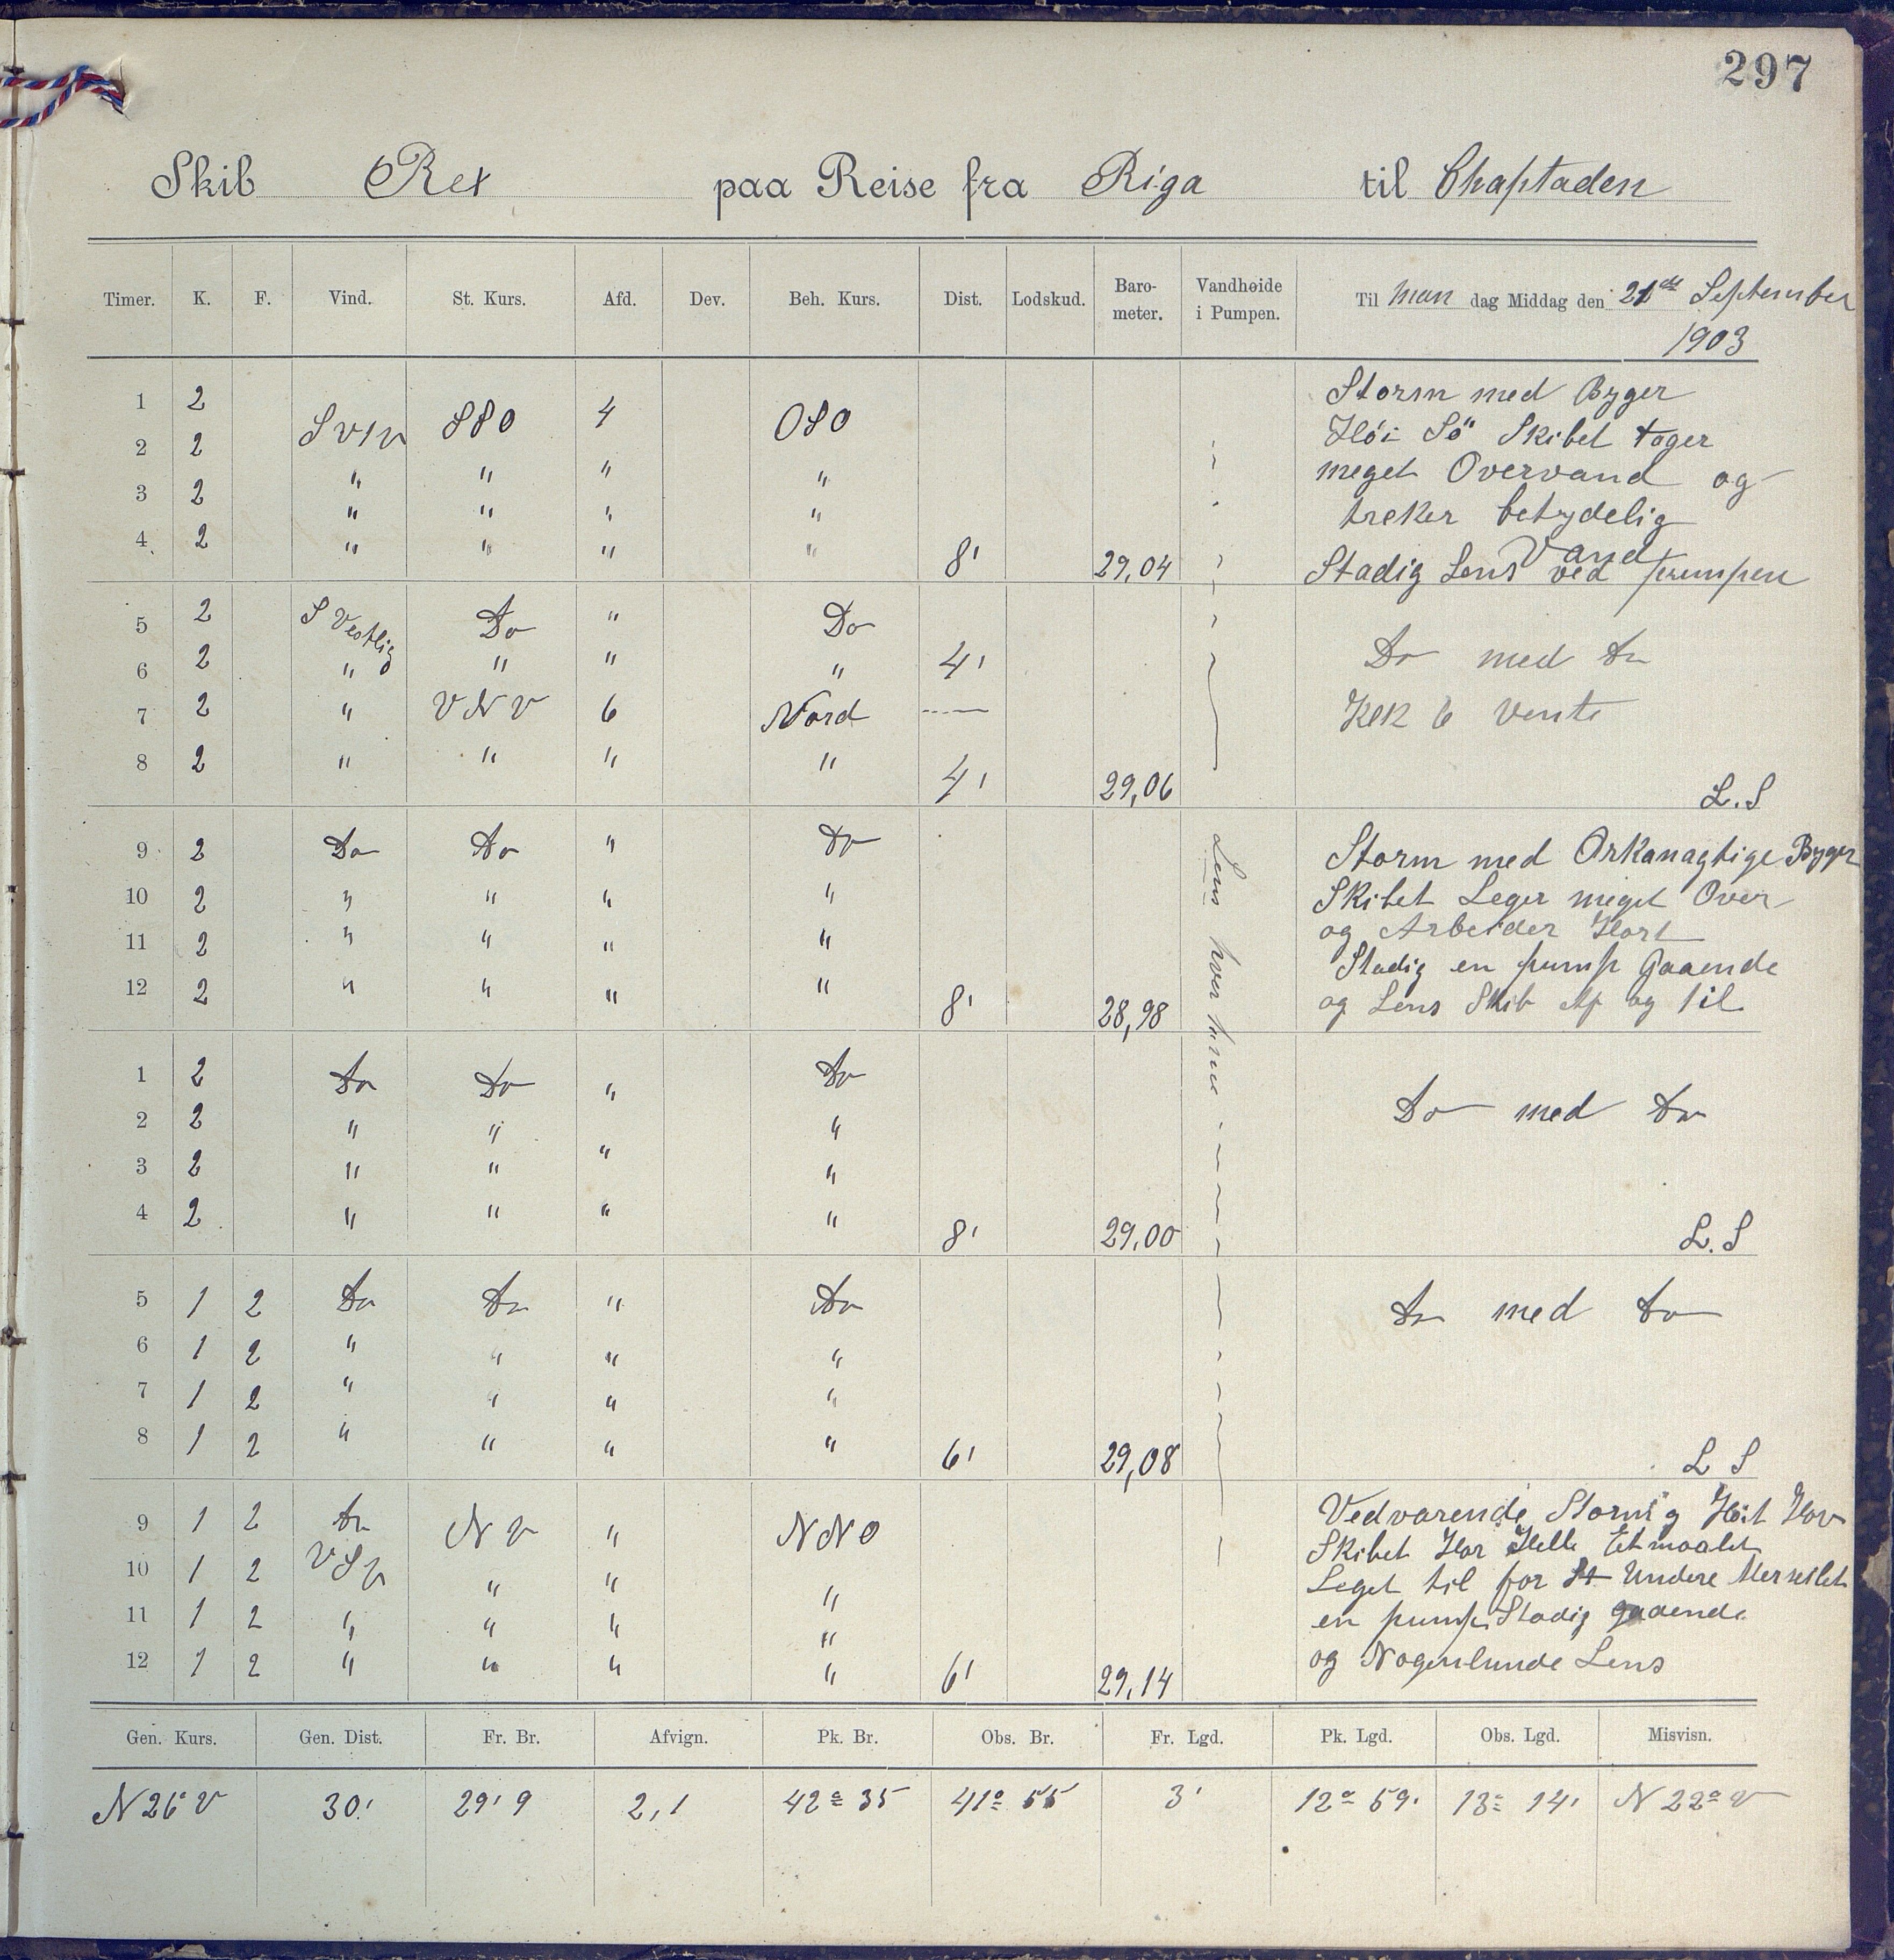 297
Skib Rex paa Reise fra Riga til Chaptaden
Timer. K. F. Vind. St. Kurs. Afd. Dev. Beh. Kurs. Dist. Lodskud. Baro-meter. Vandhøide i Pumpen. Til Man dag Middag den 21de September
1903
1 2 SVtV SSO 4 OSO Storm med Byger
2 2 " " " " Höi Sö Skibet tager
3 2 " " " " meget Overvand og
treker betydelig
Vand
4 2 " " " " 8' 29,04 Stadig Lens ved pumpen
5 2 S Vestlig Do " Do
6 2 " " " " 4' Do med Do
7 2 " VNV 6 Nord Klk 6 vente
8 2 " " " " 4' 29,06 L.S
9 2 Do Do " Do Storm med Orkanagtige Byger
10 2 " " " " Skibet Leger meget Over
11 2 " " " " og Arbeider Hort
Stadig en pump Gaaende
12 2 " " " " 8' 28,98 og Lens Skib Af og til
Lens hver time
1 2 Do Do " Do
2 2 " " " " Do med Do
3 2 " " "
4 2 " " " " 8' 29,00 L.S
5 1 2 Do Do " Do Do med Do
6 1 2 " " " "
7 1 2 " " " "
8 1 2 " " " " 6' 29,08 L S
9 1 2 Do NV " NNO Vedvarende Storm og Höit Hav
10 1 2 VSV " " " Skibet Har Helle Etmaalet
Leget til for St Undere Merseilet
11 1 2 " " " " en pump Stadig gaaende
12 1 2 " " " " 6' 29,14 og Nogenlunde Lens
Gen. Kurs. Gen. Dist. Fr. Br. Afvign. Pk. Br. Obs. Br. Fr. Lgd. Pk. Lgd. Obs. Lgd. Misvisn.
N 26° V 30' 29' 9 2,1 42° 35 41° 55 3' 12° 59' 13° 14' N 22° V